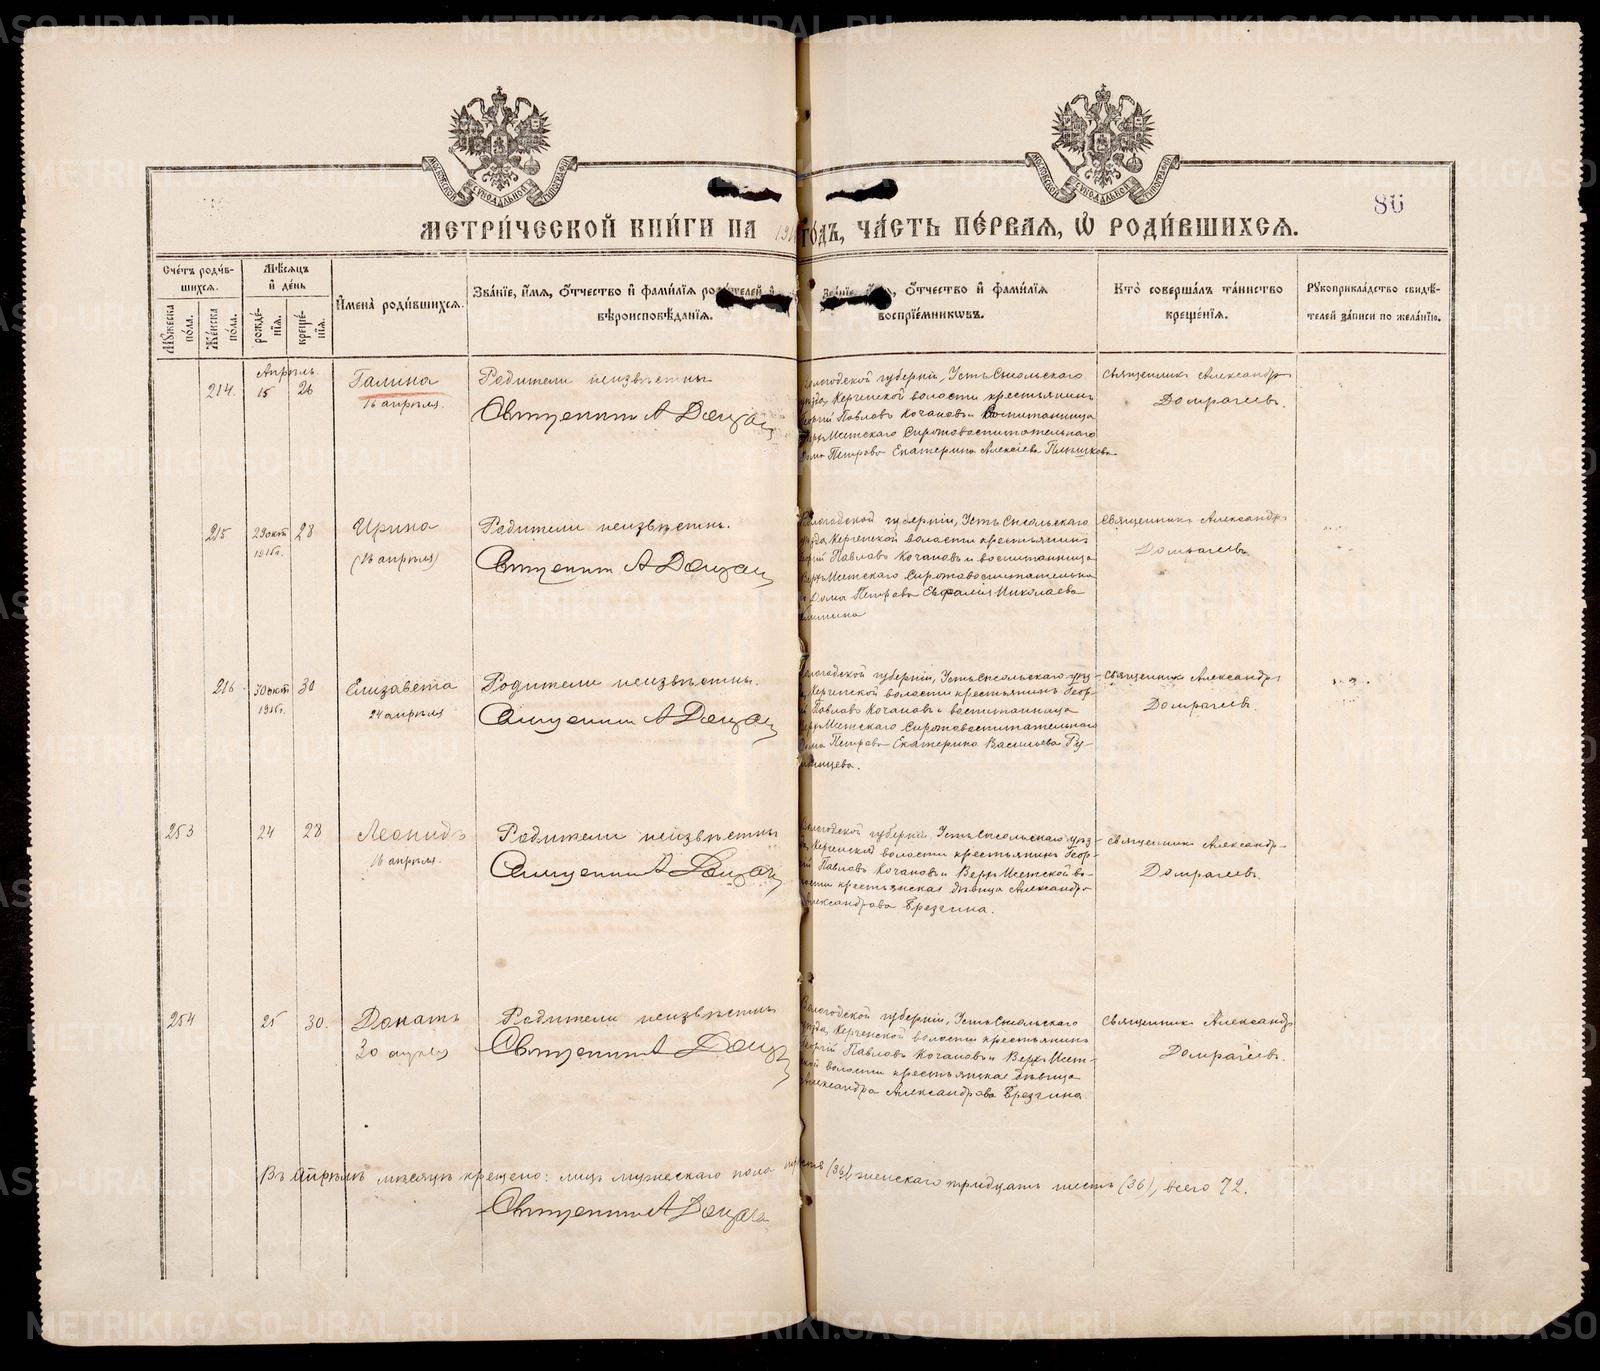 86
МЕТРИ́ЧЕСКОЙ КНИ́ГИ НА 191 ГО́ДЪ, ЧА́СТЬ ПЕ́РВАЯ, Ѡ РОДИ́ВШИХСЯ.
Сче́тъ роди́в-
шихся.
Мꙋжеска по́ла.
Же́нска по́ла.
Мѣ́сяцъ
и҆ де́нь
рожде́-
нїя.
креще́-
нїя.
И҆мена̀ роди́вшихся.
Зва́нїе, и҆́мя, ѻ҆́тчество и҆ фами́лїя роди́телей и҆
вѣроисповѣ́данїя.
Зва́нїе, и҆́мя, ѻ҆́тчество и҆ фами́лїя
воспрїе́мникѡвъ.
Кто̀ соверша́лъ та́инство
креще́нїя.
Рꙋкоприкла́дство свидѣ́-
телей за́писи по жела́нїю.
214
Апрѣль
15
26
Галина
16 апрѣля.
Родители неизвѣстны
Священник А
Вологодской губерніи, Устьсысольскаго
уѣзда, Керченской волости крестьянинъ
Георгій Павловъ Кочановъ и воспитанница
Верхъ-Исетскаго Сиротовоспитательнаго
Дома Петрова Екатерина Алексіева Плышкова
Священникъ Александръ
Домрачевъ.
215
29 окт
191 г.
28
Ирина
(16 апрѣля)
Родители неизвѣстны.
Священник А
Вологодской губерніи, Устьсысольскаго
уѣзда, Керченской волости крестьянинъ
Георгій Павловъ Кочановъ и воспитанница
Верхъ-Исетскаго Сиротовоспитательна
го Дома Петрова Евфалія Николаева
Священникъ Александръ
Домрачевъ
216
30 окт
191 г.
30
Елизавета
24 апрѣля
Родители неизвѣстны.
Священник А
Вологодской губерніи, Устьсысольскаго уѣз-
да, Керченской волости крестьянинъ Геор-
гій Павловъ Кочановъ и воспитанница
Верхъ-Исетскаго Сиротовоспитательнаго
Дома Петрова Екатерина Васильева Ру-
Священникъ Александръ
Домрачевъ
253
24
28
Леонидъ
16 апрѣля.
Родители неизвѣстны
Священник А
Вологодской губерніи, Устьсысольскаго уѣз-
да, Керченской волости крестьянинъ Геор-
гій Павловъ Кочановъ и Верхъ-Исетской во-
лости крестьянская дѣвица Александра
Александрова Брезгина.
Священникъ Александръ
Домрачевъ.
254
25
30.
Донатъ
30 апрѣля
Родители неизвѣстны
Священник А
Вологодской губерніи, Устьсысольскаго
уѣзда, Керченской волости крестьянинъ
Георгій Павловъ Кочановъ и Верхъ-Исет-
ской волости крестьянская дѣвица
Александра Александрова Брезгина
Священникъ Александръ
Домрачевъ.
Въ Апрѣлѣ мѣсяцѣ крещено: лицъ мужескаго пола (36), женскаго тридцать шесть (36), всего 72.
Священник А
METRIKI.GASO-URAL.RU